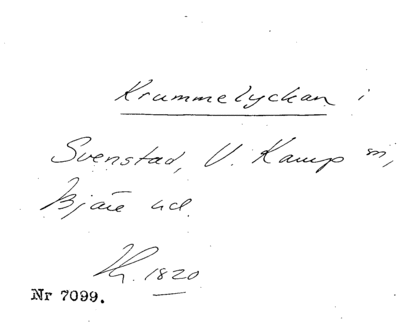 Krummelyckan i
Svenstad, V. Karup sn,
Bjäre hd.
1820
Nr 7099.